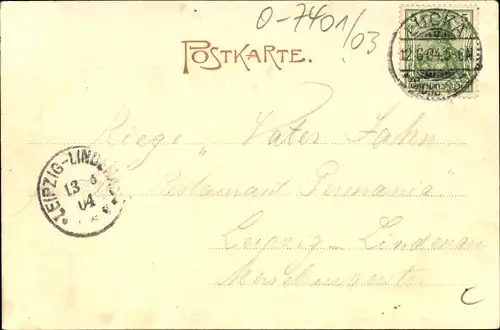 0-7401/03
POSTKARTE.
LUCKA
12.6.04.5-6N
LEIPZIG-LINDENAU
13 6
04
Riege „Vater Jahn
Restaurant Germania"
Leipzig-Lindenau
Merseburgerstr.